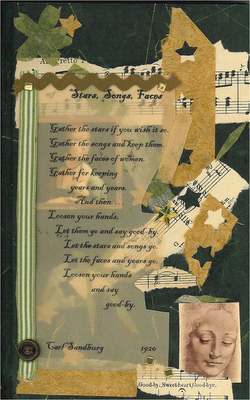 Allegretto
Stars, Songs, Faces
Gather the stars if you wish it so.
Gather the songs and keep them.
Gather the faces of women.
Gather for keeping
years and years.
And then . . .
Loosen your hands,
Let them go and say good-by.
Let the stars and songs go.
Let the faces and years go.
Loosen your hands
and say
good-by.
Carl Sandburg 1920
Good-by, Sweet-heart, Good-bye.